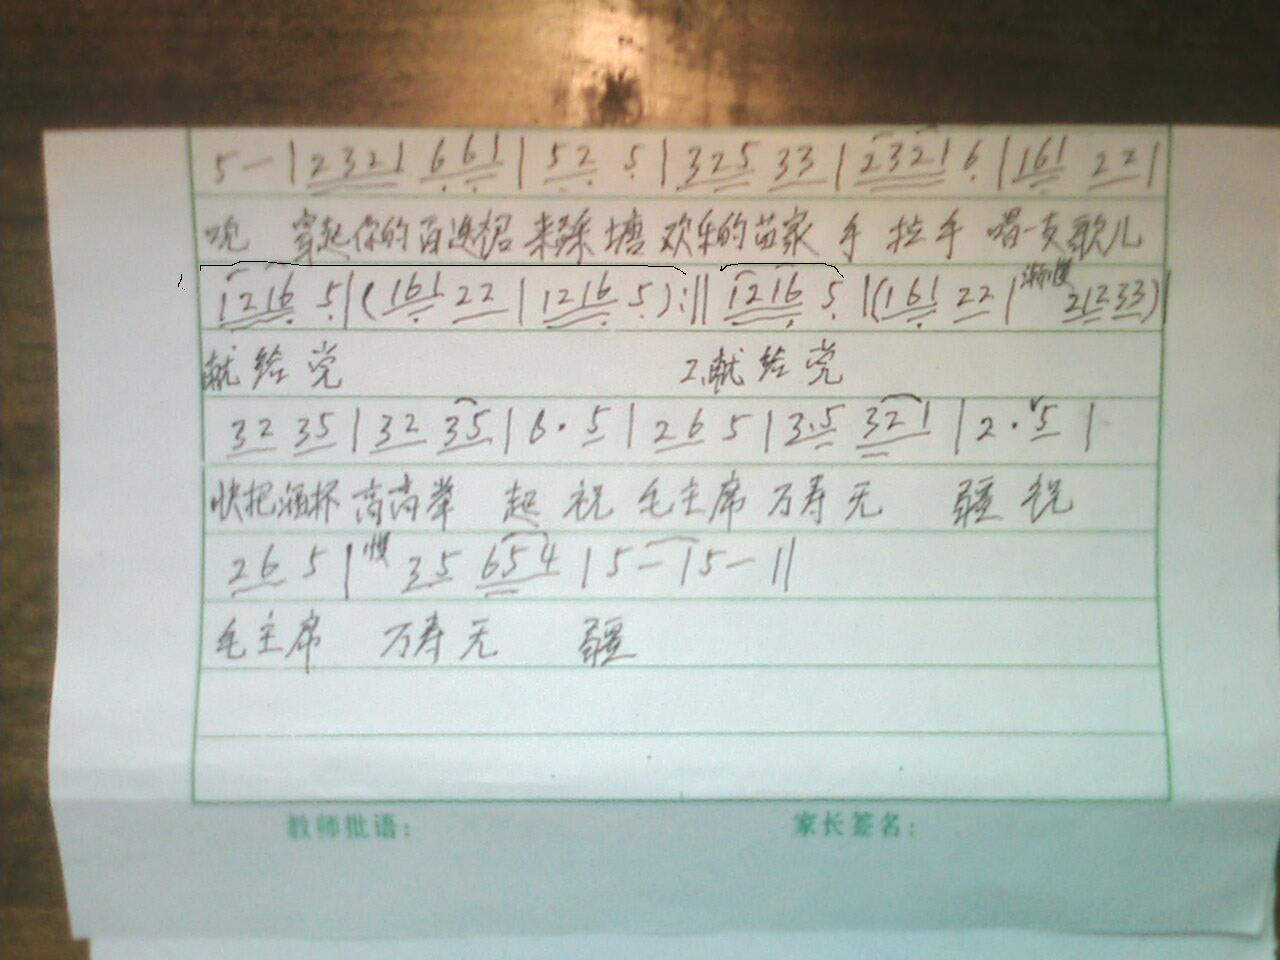 5 — | 2321 661 | 52 5 | 325 33 | 2321 6 | 161 22 |
穿起你的百迭裙 来踩塘 欢乐的苗家 手 拉手 唱一支歌儿
1216 5 | (161 22 | 1216 5) :|| 1216 5 | (161 22 | 渐慢 21233) |
献给党 2.献给党
32 35 | 32 35 | 6 · 5 | 26 5 | 3.5 321 | 2 · 5 |
快把酒杯高高举 起 祝 毛主席 万寿无 疆 祝
26 5 | 慢 35 654 | 5 — | 5 — ||
毛主席 万寿无 疆
教师批语: 家长签名: